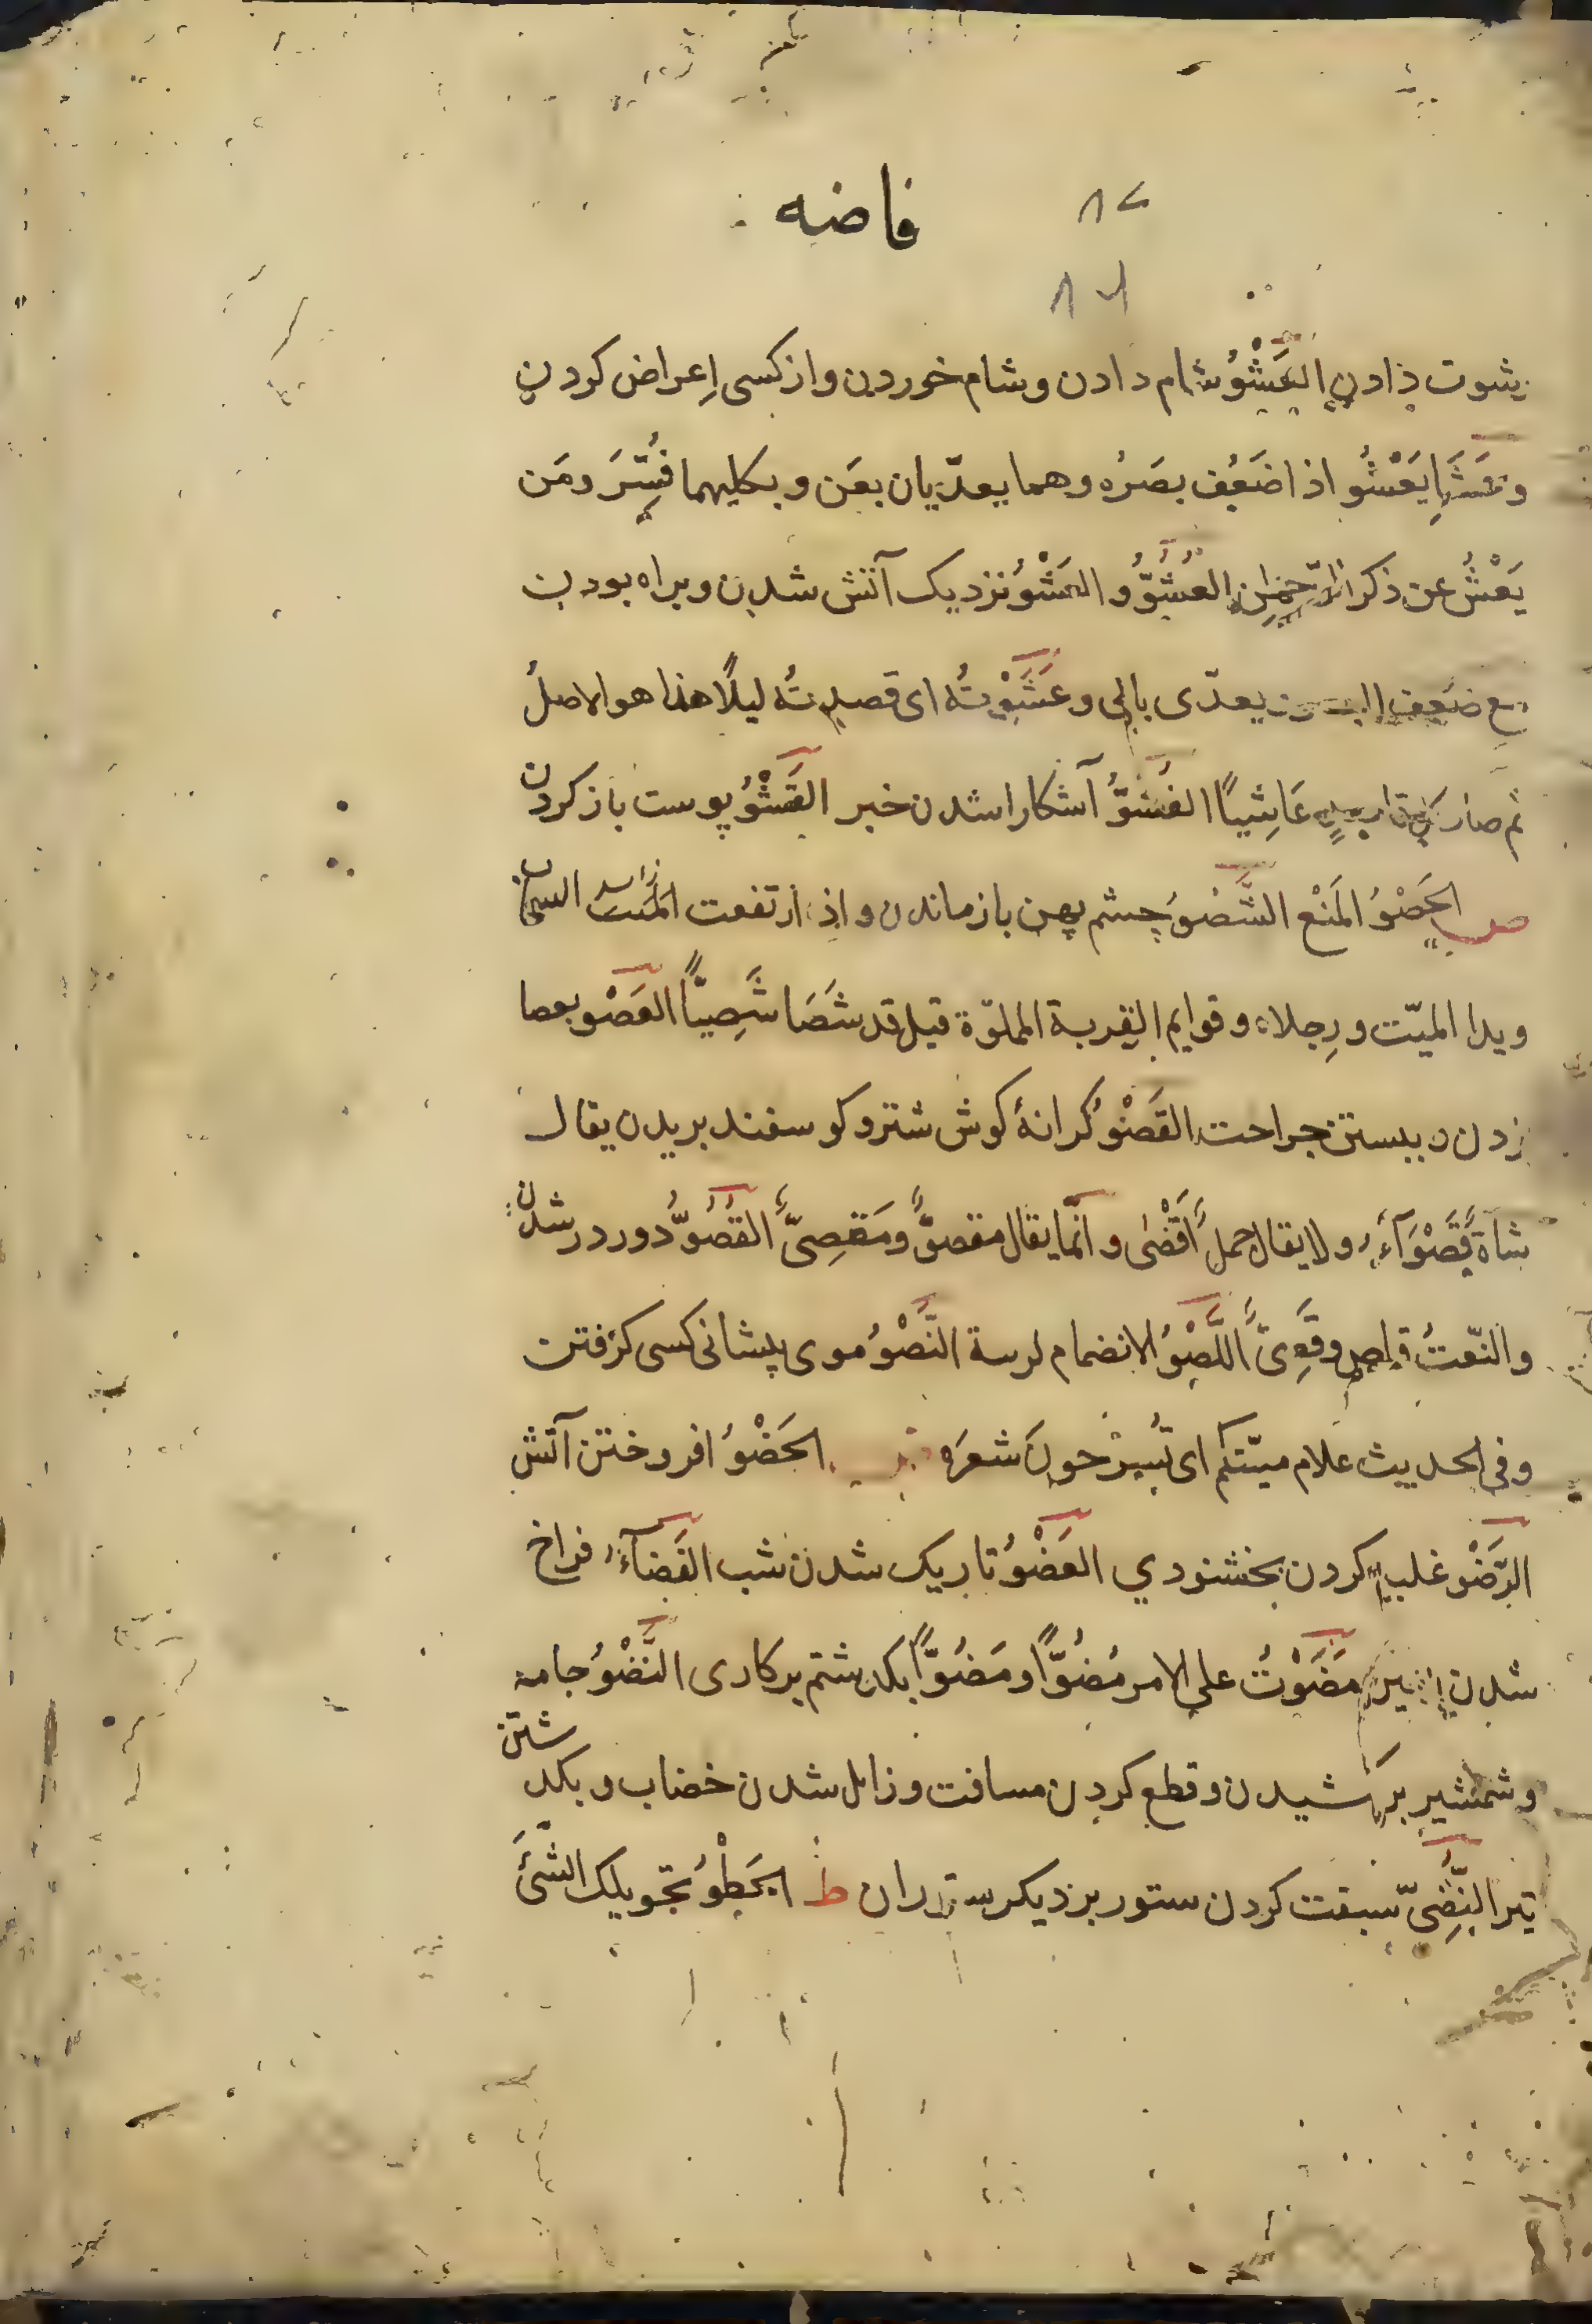 فاضه
۸۷
۸۶
رشوت دادن العَشْوُ شام دادن وشام خوردن واز کسی اِعراض کردن
وعَشَا يَعْشُو اذا ضَعُف بصَرُه وهما يعدّيان بعَن وبكليهما فُسِّرَ ومَن
يَعْشُ عن ذكر الرّحمٰن العُشُوُّ و العَشْوُ نزدیک آتش شدن وبراه بودن
مع ضَعف البصر يعدّى بالى وعَشَوْتُه اى قصدتُه ليلًا هذا هو الاصلُ
ثم صار كل قاصدٍ عَاشِيًا الفُشُوُّ آشکارا شدن خبر القَشْوُ پوست باز کردن
ص الحَصْوُ المَنْع الشَّصْوُ چشم پهن باز ماندن و اذا ارتفعت السحاب
ويدا الميّت ورِجلاه وقوايم القِربة المملوّة قيل قد شَصَا شَصِيًّا العَصْو بعصا
زدن و ببستن جراحت القَصْوُ کرانۀ کوش شتر وکوسفند بریدن يقال
شاةٌ قَصْوَآءُ ولا يقال جملٌ أَقْصٰى و انّما يقال مقصوٌّ ومَقصِىٌّ القُصُوُّ دور در شدن
والنّعتُ قاصٍ وقَصِىٌّ اللَّصْوُ الانضمام لرسة النَّصْوُ موى پیشانی کسی کرفتن
وفى الحديث علام ميّتكم اى تُسرّحونَ شعرَه الحَضْوُ افروختن آتش
الرَّضْو غلبه کردن بخشنودي الغَضْوُ تاریک شدن شب الفَضآءُ فراخ
شدن مَضَوْتُ على الامر مُضُوًّا ومَضُوًّا بکذشتم بر کاری النَّضْوُ جامه
وشمشیر برکشیدن وقطع کردن مسافت وزائل شدن خضاب وبکذشتن
تیر النُّضِىّ سبقت کردن ستور بر دیکر ستوران ط الحَطْوُ تحويلك الشَّئَ